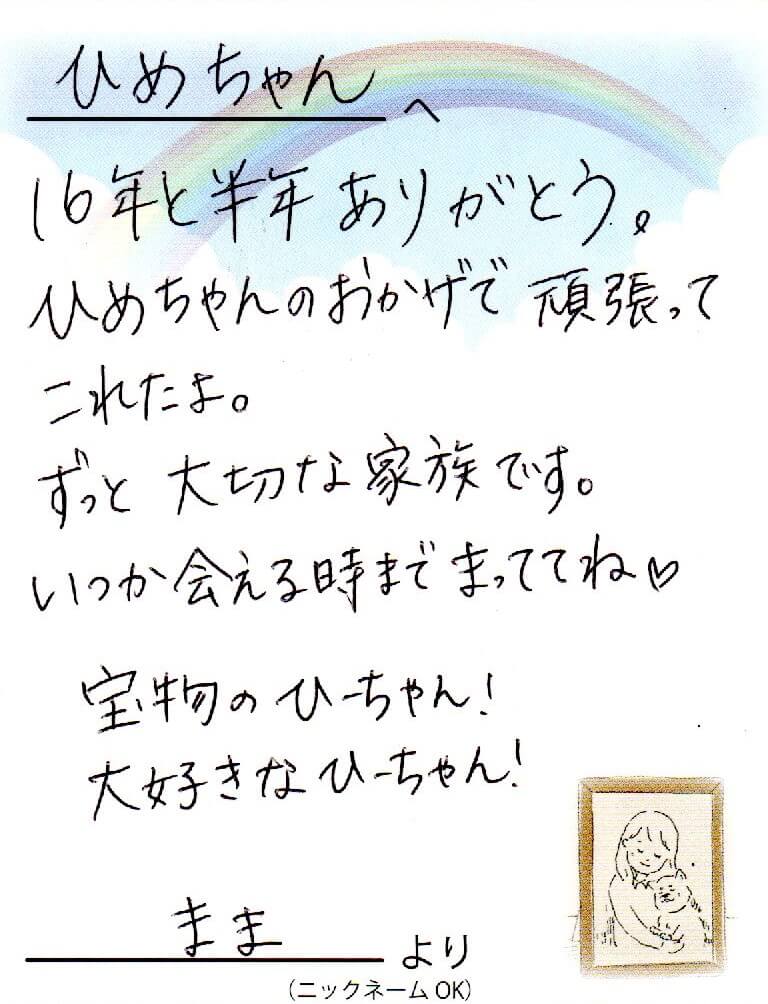 ひめちゃん へ
16年と半年 ありがとう。
ひめちゃんのおかげで 頑張って
これたよ。
ずっと 大切な家族です。
いつか会える時まで まっててね♡
宝物の ひーちゃん!
大好きな ひーちゃん!
まま より
(ニックネームOK)